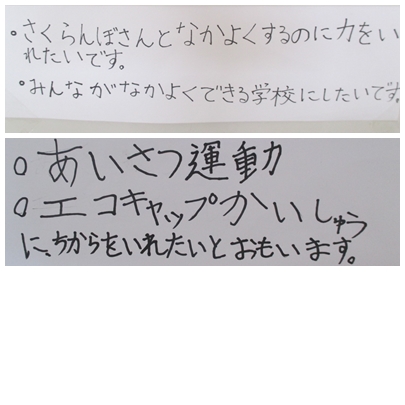 ・さくらんぼさんとなかよくするのに力をい
れたいです。
・みんながなかよくできる学校にしたいです。
○あいさつ運動
○エコキャップかいしゅう
に、ちからをいれたいとおもいます。